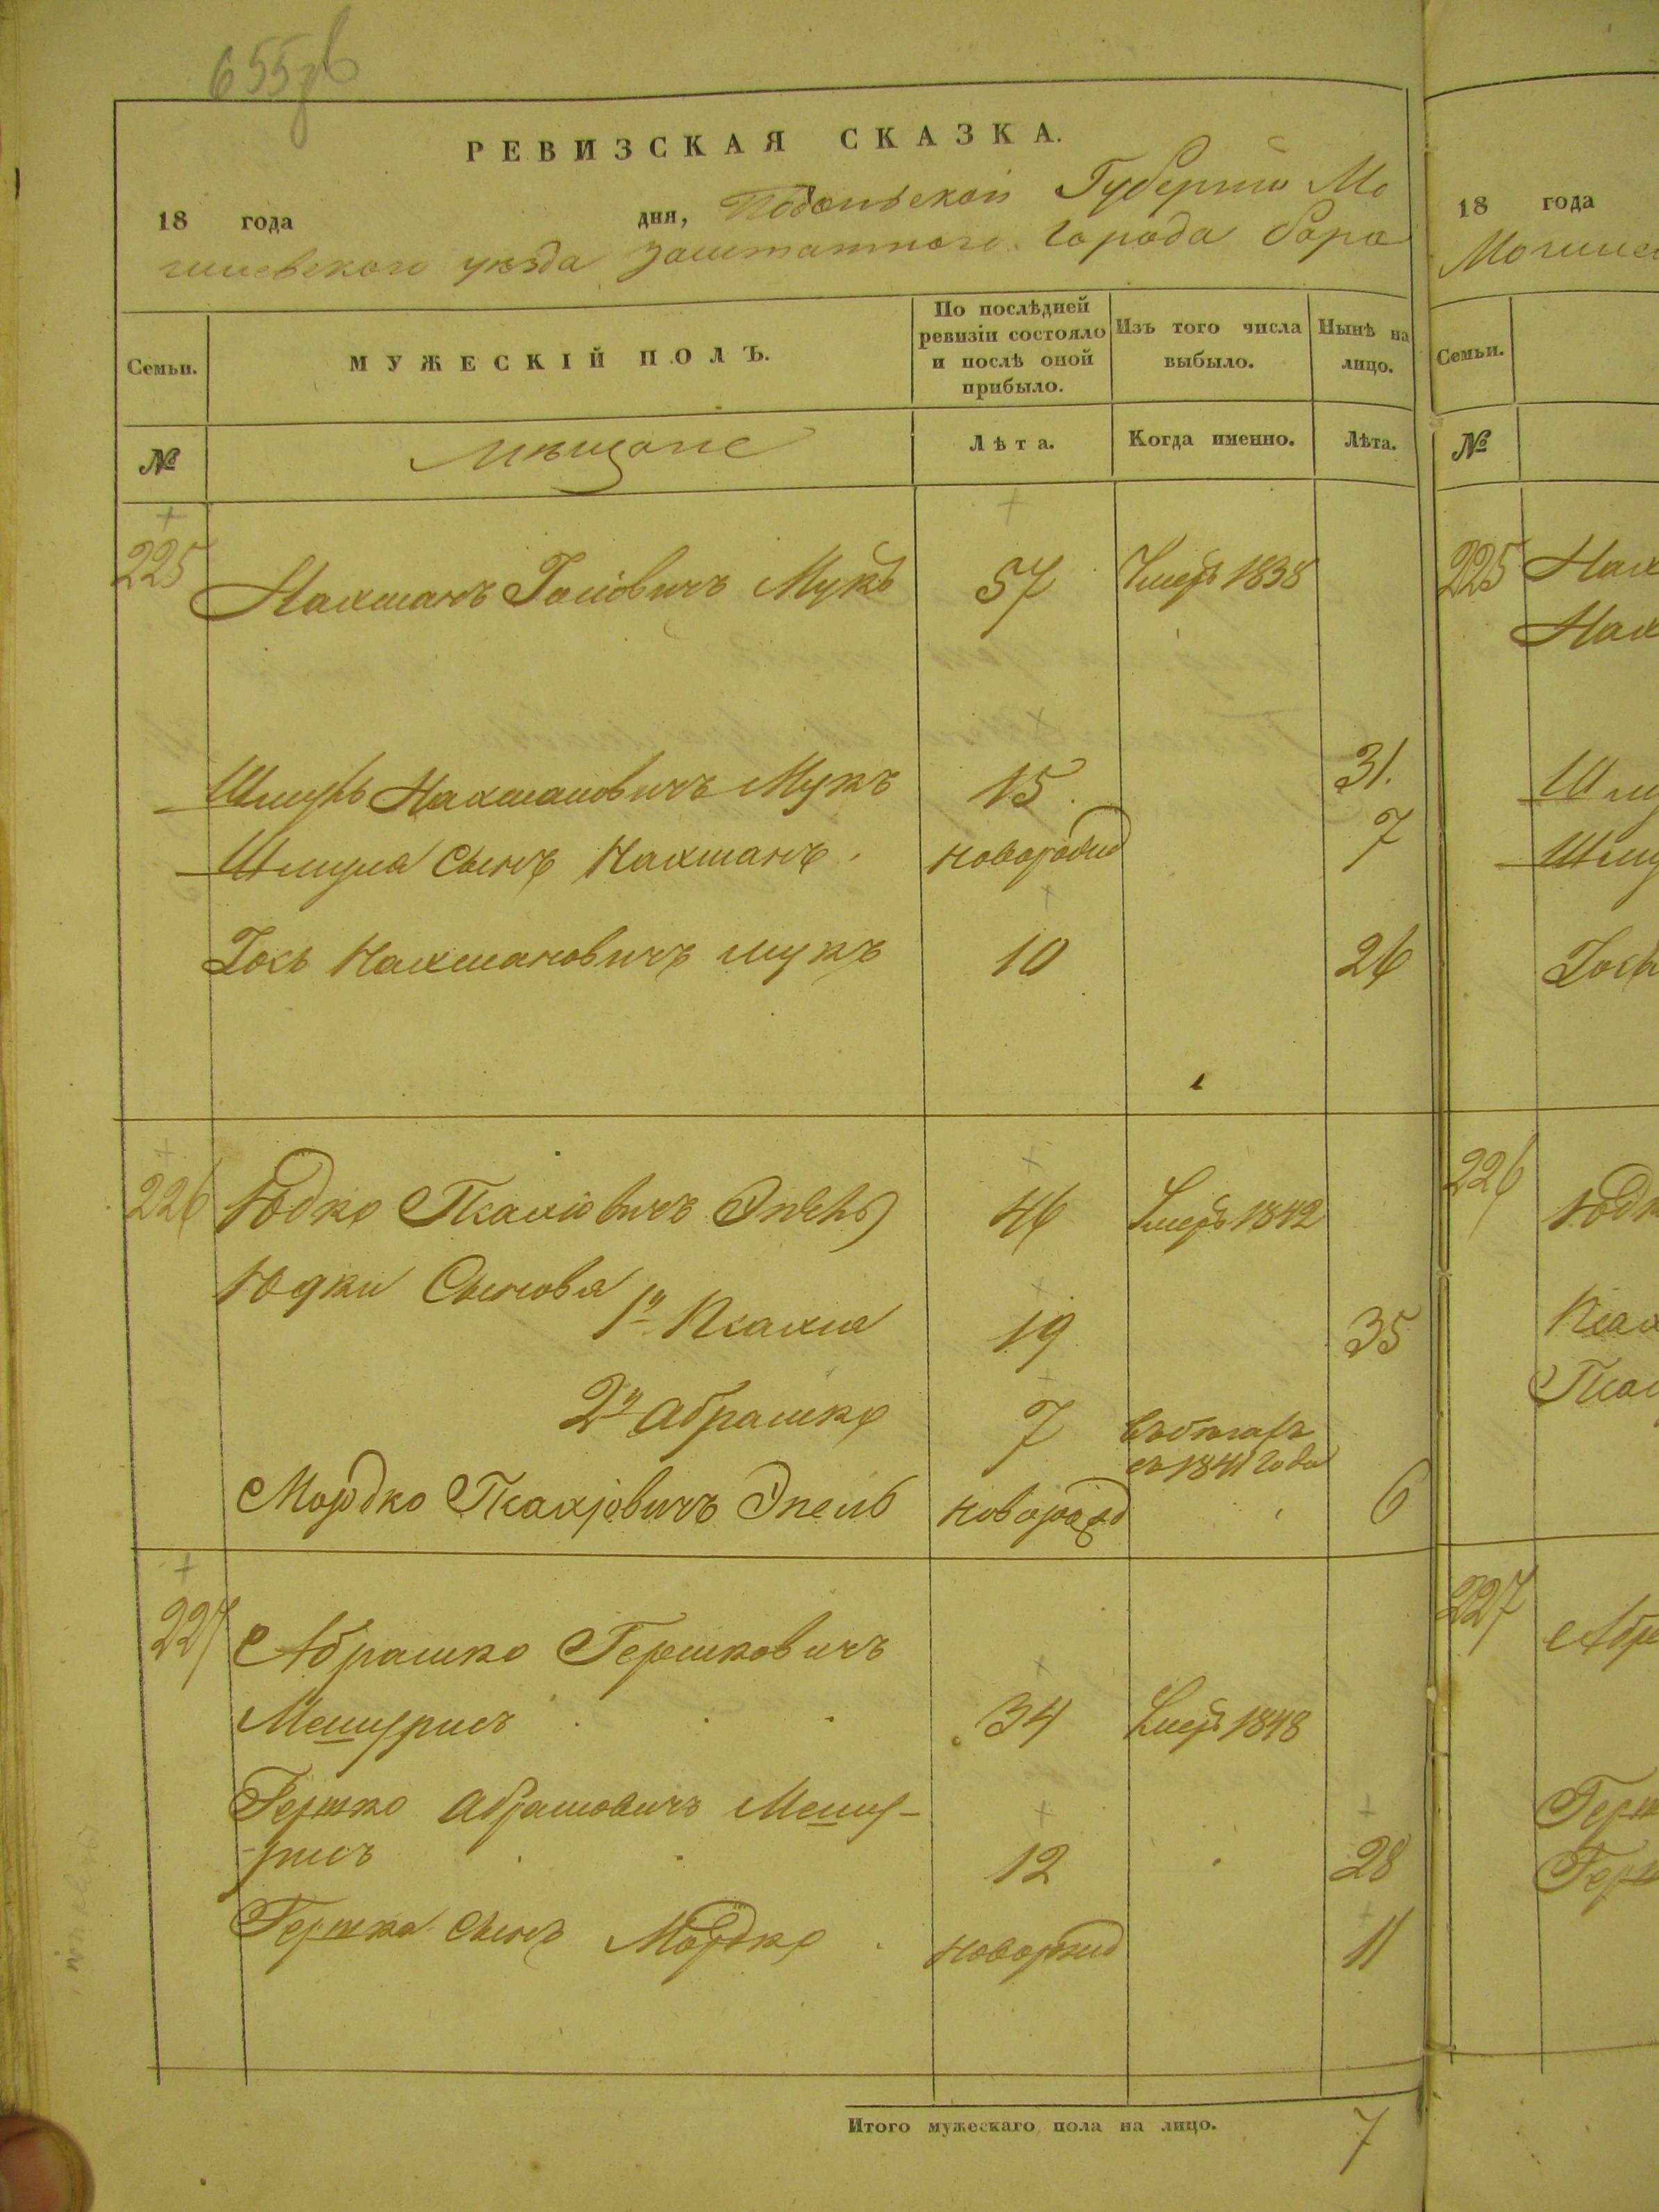 655
РЕВИЗСКАЯ СКАЗКА.
18 года дня, Подольской Губернiи Мо
гилевского уезда заштатного Города бара
Семьи.
МУЖЕСКІЙ ПОЛЪ.
По послѣдней ревизіи состояло и послѣ оной прибыло.
Изъ того числа выбыло.
Нынѣ на лицо.
№
Мѣщане
Лѣта.
Когда именно.
Лѣта.
225 Нахманъ Мукъ 57 Умеръ 1838
Нахмановичъ Мукъ 15 31.
Шмуля сынъ Нахманъ новорожд 7
Іось Нахмановичъ мукъ 10 26
226 Юдко Пкахіовичъ 46 Умеръ 1842
Юдки Сыновя 1й Пкахия 19 35
2й Абрашко 7
съ 1841 года
Мордко Пкахіовичъ Эпель новорожд 6
227 Абрашко Гершковичъ
Мешурисъ 34 Умеръ 1848
Гершко Абрамовичъ Мешу-
-рисъ 12 28
Гершка сынъ Мордко новорожд 11
Итого мужескаго пола на лицо. 7
18 года
Семьи.
№
225
226
227